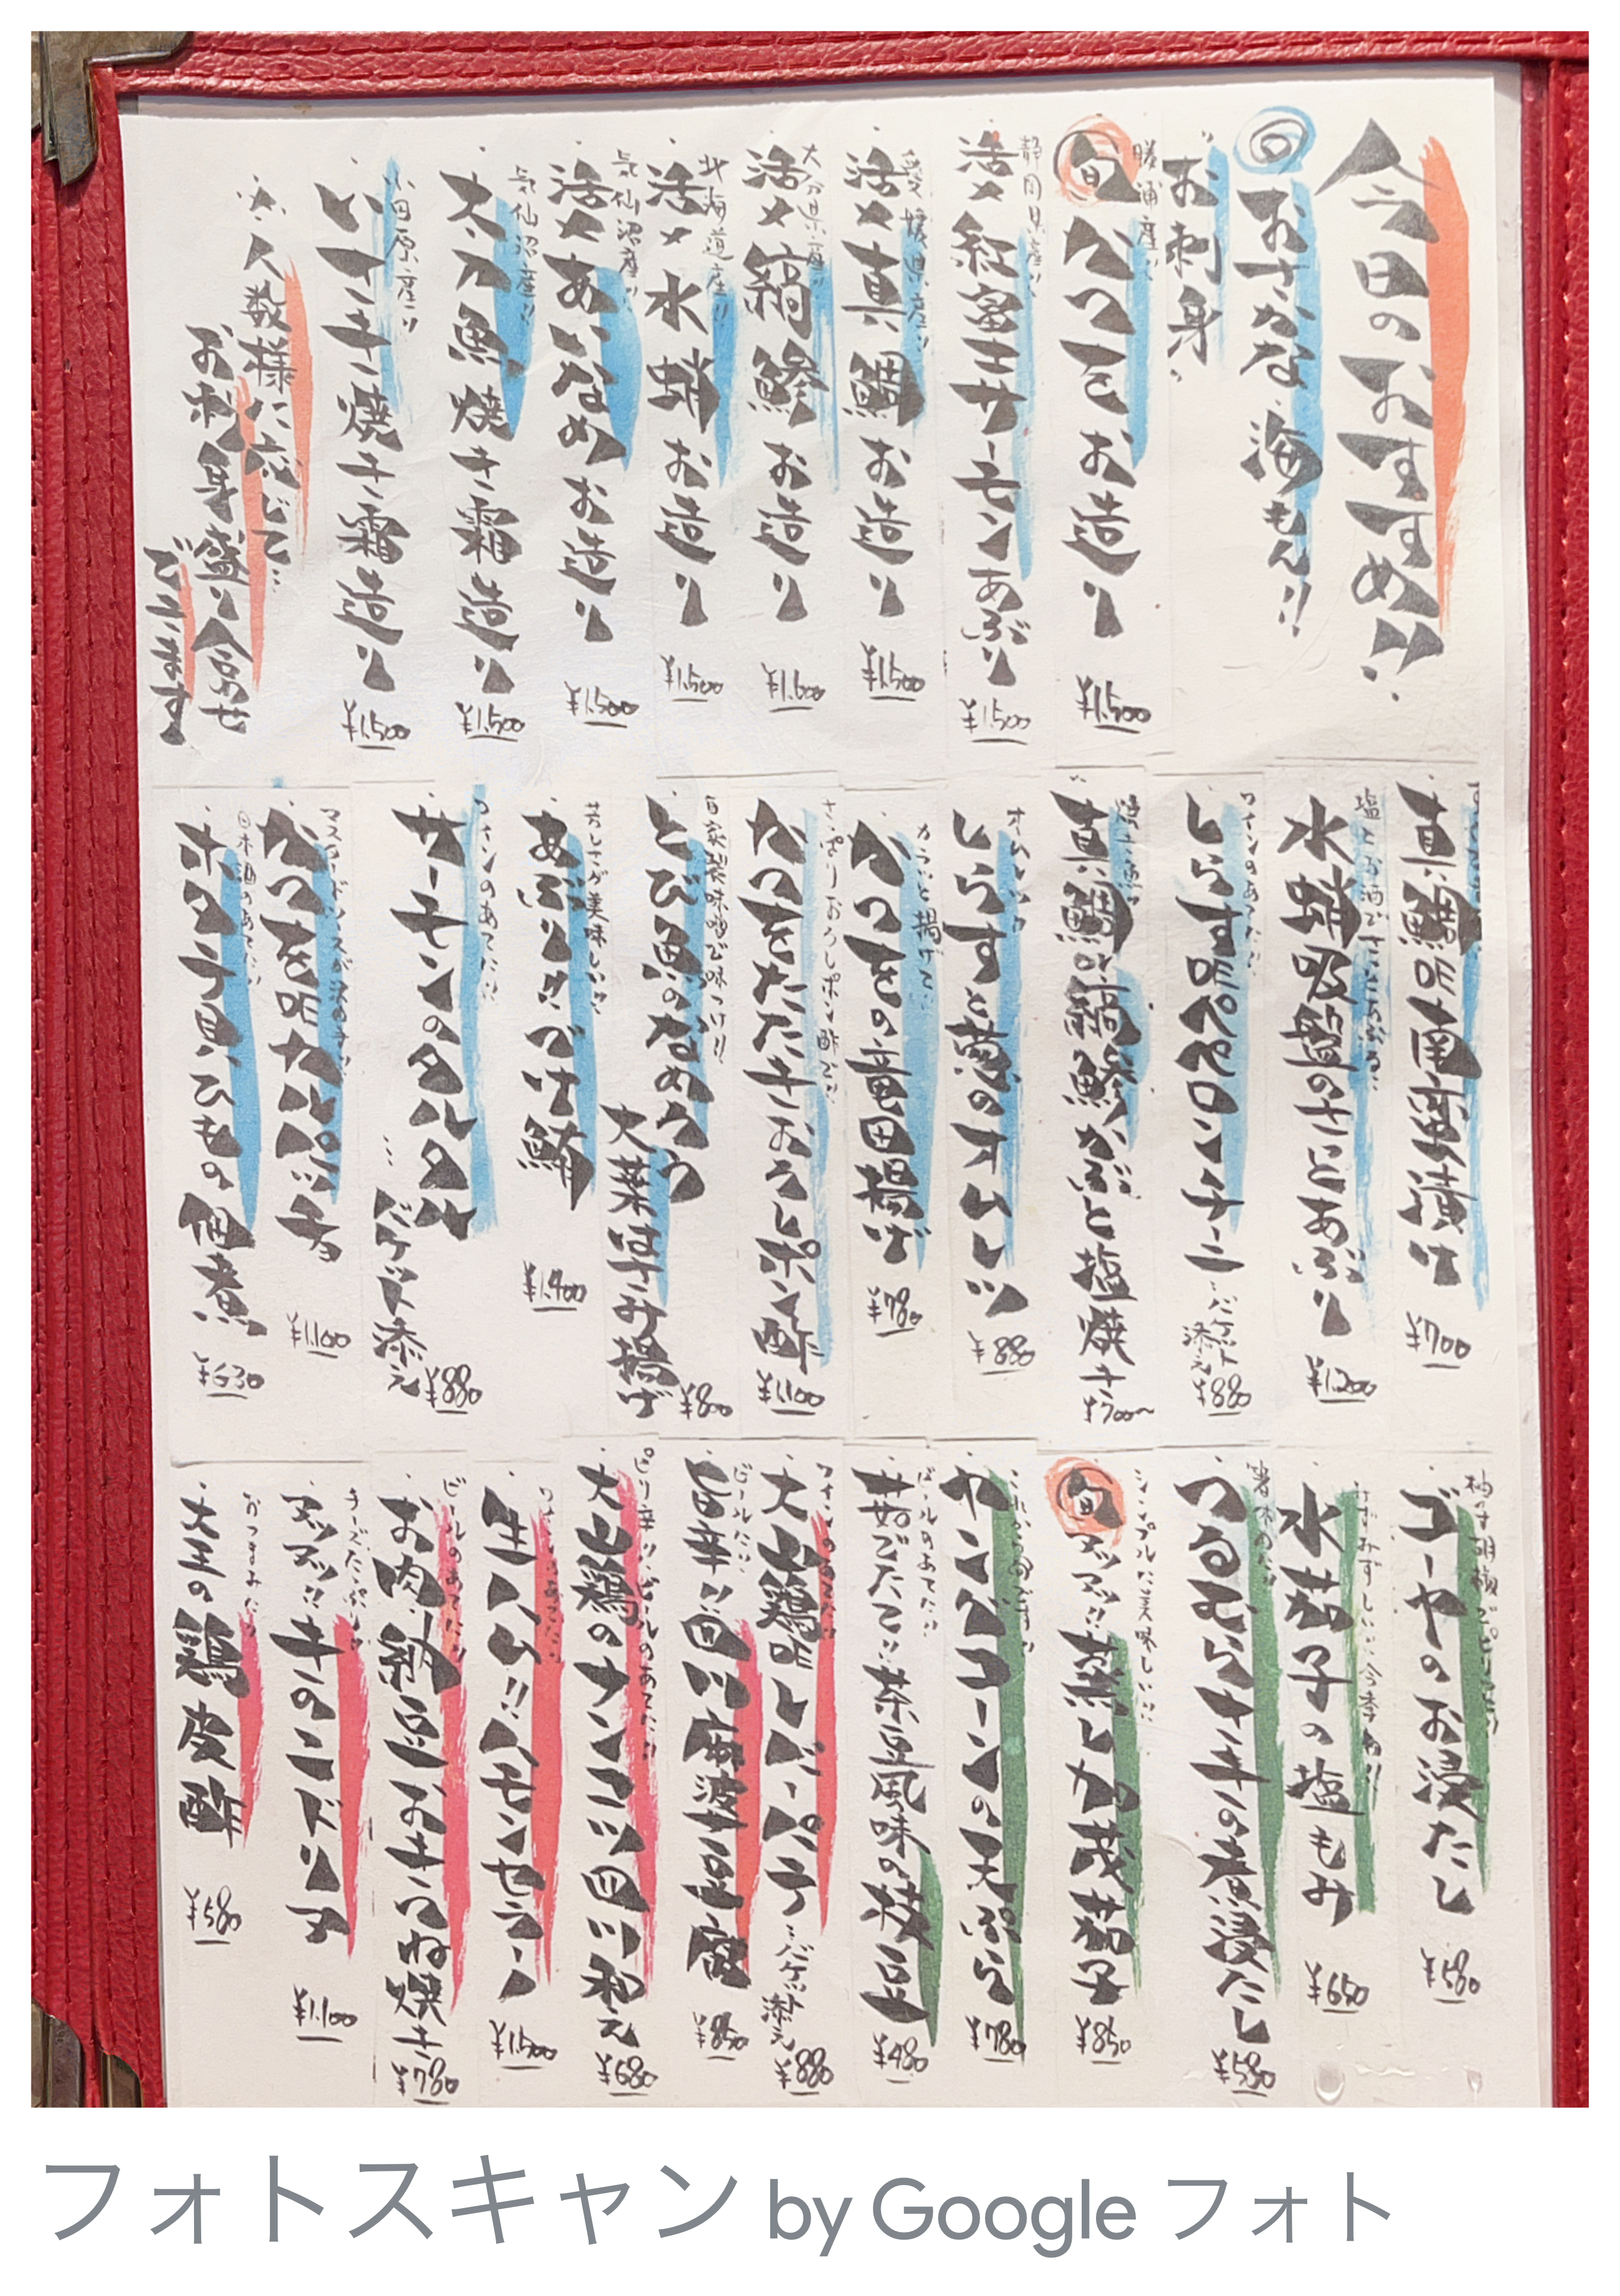 今日のおすすめ!!
◎おさかな、海もん!!
"お刺身"
勝浦産!!
旬 かつをお造り ¥1,500
静岡県産!!
活〆紅富士サーモンあぶり ¥1,500
愛媛県産!!
活〆真鯛お造り ¥1,500
大分県産!!
活〆縞鯵お造り ¥1,600
北海道産!!
活〆水蛸お造り ¥1,500
気仙沼産!!
活〆あいなめお造り ¥1,500
気仙沼産!!
太刀魚焼き霜造り ¥1,500
小田原産!!
いさき焼き霜造り ¥1,500
※人数様に応じて…
お刺身盛り合せ
でこます
真鯛の南蛮漬け ¥700
水蛸吸盤のさっとあぶり ¥1,200
ワインのあてに!!
しらすのペペロンチーニ …バケット添え ¥880
真鯛か縞鯵かぶと塩焼き ¥700〜
しらすと葱のオムレツ ¥880
カラッと揚げて!!
かつをの竜田揚げ ¥780
さっぱりおろしポン酢で!!
かつをたたきおろしポン酢 ¥1,100
自家製味噌で味つけ!!
とび魚のなめろう
大葉はさみ揚げ ¥800
芳しさが美味しい!!
あぶり!!づけ鮪 ¥1,400
ワインのあてに!!
サーモンのタルタル
…バケット添え ¥880
かつをのカルパッチョ ¥1,100
日本酒のあてに!!
ホタテ貝ひもの佃煮 ¥630
柚子胡椒でピリッと!!
ゴーヤのお浸たし ¥580
みずみずしい!!今季初!!
水茄子の塩もみ ¥650
箸休めに!!
つるむらさきの煮浸たし ¥580
シンプルに美味しい!!
旬 アツアツ!!蒸し加茂茄子 ¥850
これから旬です!!
ヤングコーンの天ぷら ¥780
ビールのあてに!!
茹でたて!!茶豆風味の枝豆 ¥480
ワインのあてに!!
大山鶏のレバーパテ …バケット添え ¥880
ビールに!!
旨辛!!四川麻波豆腐 ¥850
ピリ辛!!ビールのあてに!!
大山鶏のナンコツ四川和え ¥680
ワインのあてに!!
生ハム!!ハモンセラーノ ¥1,500
ビールのあてに!!
お肉、納豆、おきつね焼き ¥780
チーズたっぷり!!
アツアツ!!キのこドリア ¥1,100
おつまみに!!
大王の鶏皮酢 ¥580
フォトスキャン by Google フォト